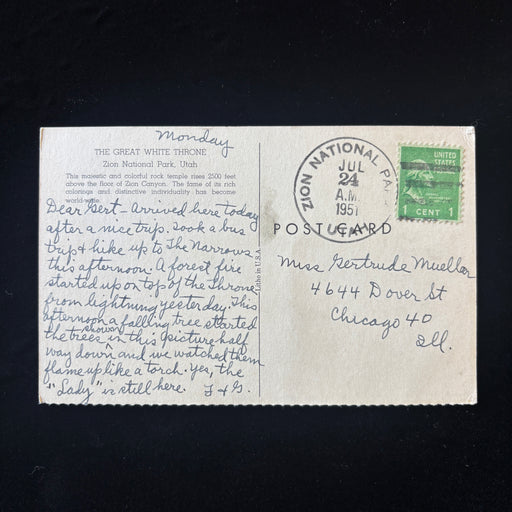 Monday
THE GREAT WHITE THRONE
Zion National Park, Utah
This majestic and colorful rock temple rises 2500 feet
above the floor of Zion Canyon. The fame of its rich
colorings and distinctive individuality has become
world-wide.
Dear Gert - Arrived here today
after a nice trip. Took a bus
trip & hike up to The Narrows
this afternoon. A forest fire
started up on top of the Throne
from lightning yesterday. This
afternoon a falling tree started
the trees shown in this picture half
way down and we watched them
flame up like a torch. Yes, the
"Lady" is still here. F & G.
Litho in U.S.A.
ZION NATIONAL PARK
JUL
24
A.M.
1951
UTAH
UNITED
STATES
1 CENT 1
POST CARD
Miss Gertrude Mueller
4644 Dover St
Chicago 40
Ill.